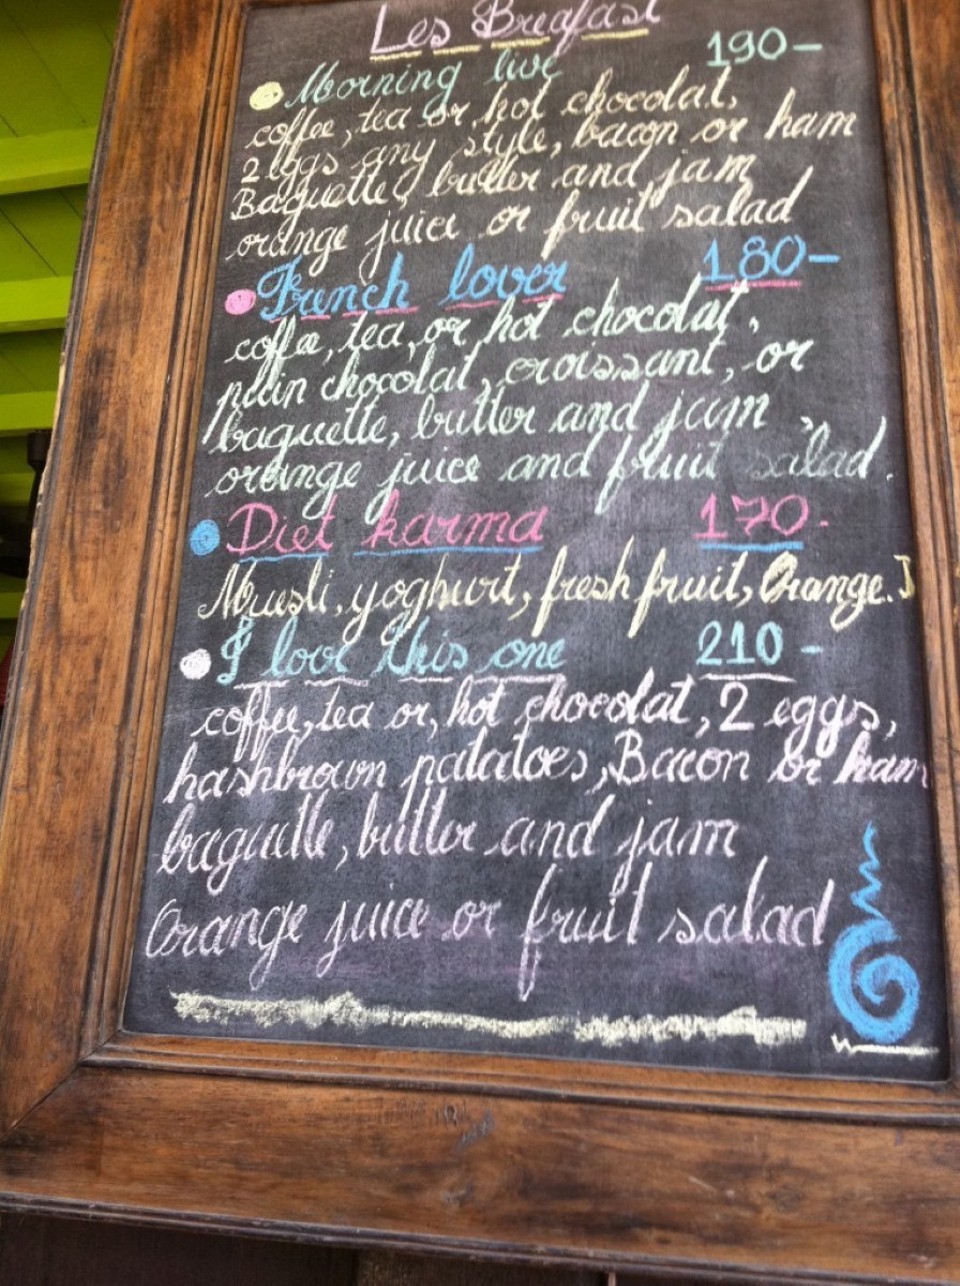 Les Breafast
Morning live 190-
coffee, tea or hot chocolat,
2 eggs any style, bacon or ham
Baguette, butter and jam
orange juice or fruit salad
French lover 180-
coffee, tea, or hot chocolat,
pain chocolat, croissant, or
baguette, butter and jam,
orange juice and fruit salad.
Diet karma 170-
Muesli, yoghurt, fresh fruit, Orange. J
I love this one 210-
coffee, tea or, hot chocolat, 2 eggs,
hashbrown patatoes, Bacon or ham
baguette, butter and jam
Orange juice or fruit salad